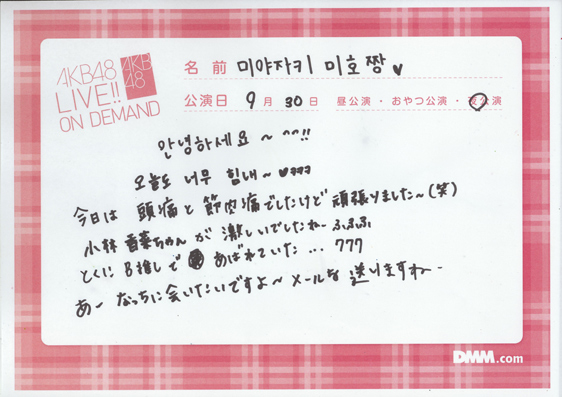 AKB48
LIVE!!
ON DEMAND
AKB
48
名前 미야자키 미호짱♥
公演日 9月30日 昼公演・おやつ公演・夜公演
안녕하세요~^^!!
오늘도 너무 힘내~♥ㅋㅋㅋ
今日は 頭痛と筋肉痛でしたけど 頑張りました~(笑)
小林香菜ちゃんが 激しいでしたねー ふふふ
とくに B推しで あばれていた... ククク
あー なっちに会いたいですよ~ メールを 送りますねー
DMM.com